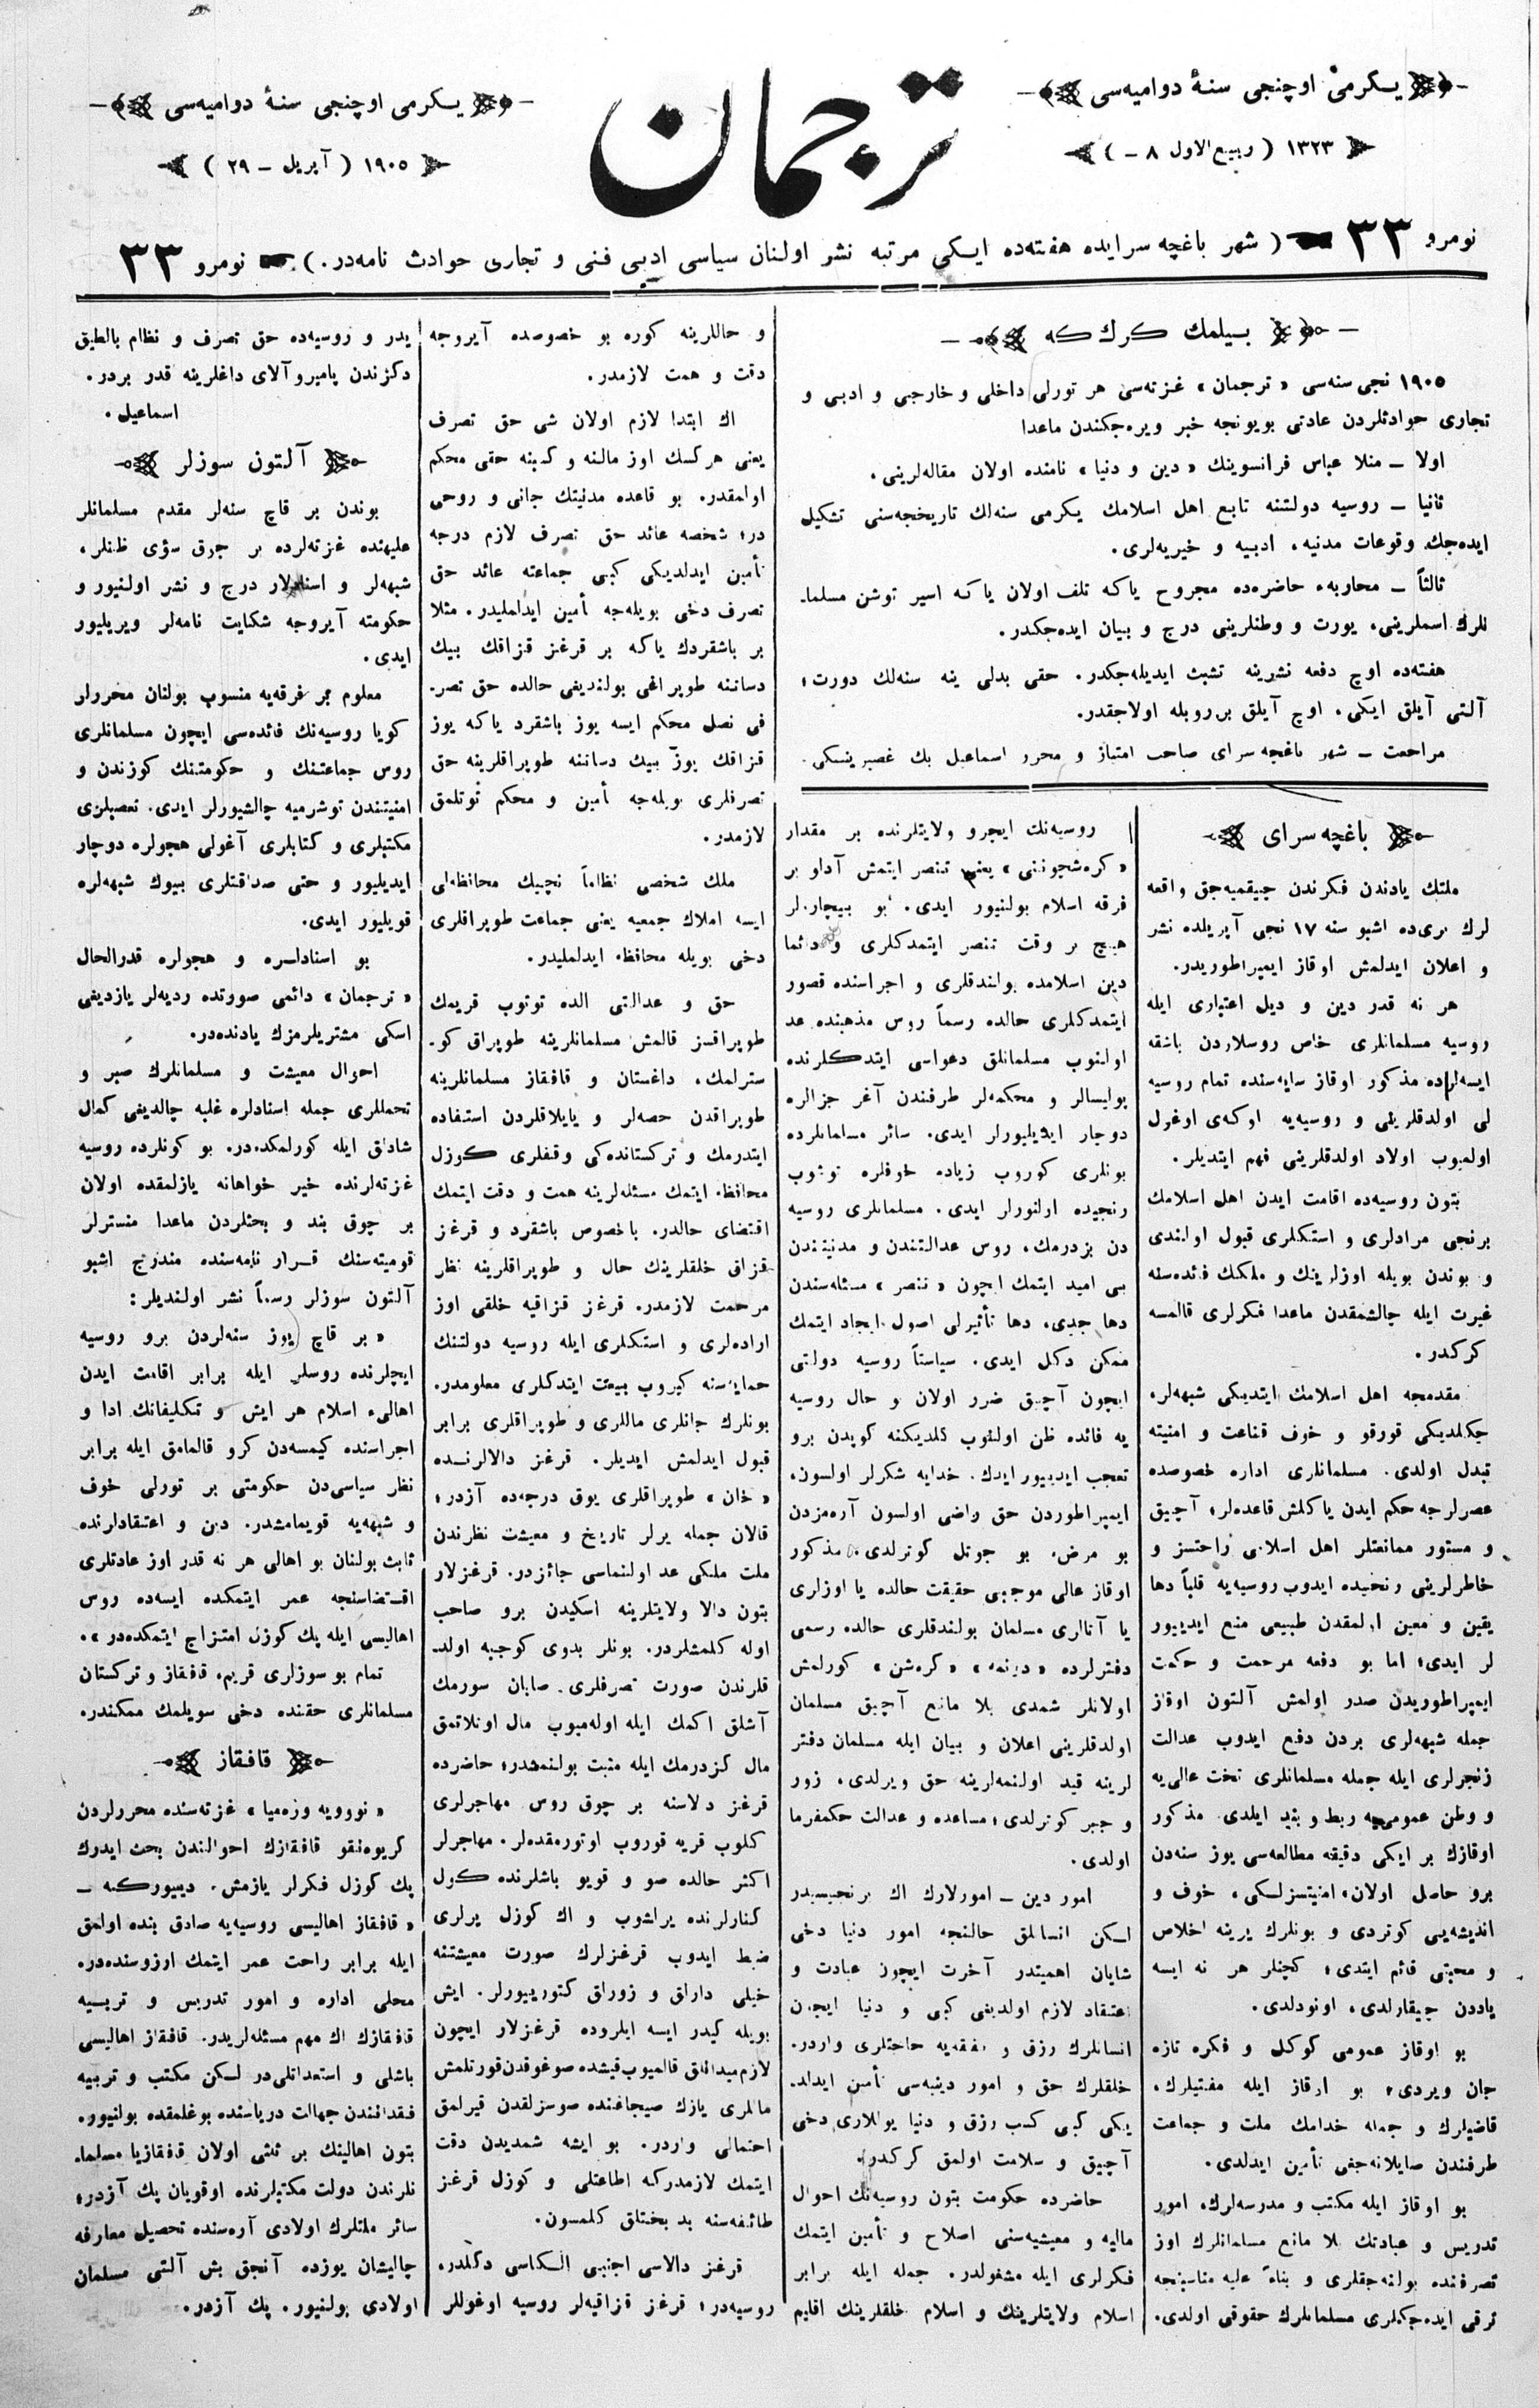 يكرمى اوچنجى سنۀ دواميه‌سى
۱۳۲۳ ( ربيع الاول ۸ - )
ترجمان
يكرمى اوچنجى سنۀ دواميه‌سى
۱۹۰۵ ( آپريل - ۲۹ )
نومرو ۳۳ ( شهر باغچه سرايده هفته‌ده ايكى مرتبه نشر اولنان سياسى ادبى فنى و تجارى حوادث نامه‌در. ) نومرو ۳۳
بيلمك كرك كه
۱۹۰۵ نجى سنه‌سى « ترجمان » غزته‌سى هر تورلى داخلى و خارجى و ادبى و
تجارى حوادثلردن عادتى بويونجه خبر ويره‌جكندن ماعدا
اولا ــ منلا عباس فرانسوينك « دين و دنيا » نامنده اولان مقاله‌لرينى.
ثانيا ــ روسيه دولتنه تابع اهل اسلامك يكرمى سنه‌لك تاريخچه‌سنى تشكيل
ايده‌جك وقوعات مدنيه، ادبيه و خيريه‌لرى.
ثالثاً ــ محاربهٔ حاضره‌ده مجروح ياكه تلف اولان ياكه اسير توشن مسلما-
نلرك اسملرينى، يورت و وطنلرينى درج و بيان ايده‌جكدر.
هفته‌ده اوچ دفعه نشرينه تشبث ايديله‌جكدر. حقى بدلى ينه سنه‌لك دورت؛
آلتى آيلق ايكى، اوچ آيلق بر روبله اولاجقدر.
مراجعت ــ شهر باغچه سراى صاحب امتياز و محرر اسماعيل بك غصپرينسكى.
باغچه سراى
ملتك يادندن فكرندن چيقميه‌جق واقعه
لرك برى‌ده اشبو سنه ۱۷ نجى آپريلده نشر
و اعلان ايدلمش اوقاز ايمپراطوريدر.
هر نه قدر دين و ديل اعتبارى ايله
روسيه مسلمانلرى خاص روسلاردن باشقه
ايسه‌لرده مذكور اوقاز سايه‌سنده تمام روسيه
لى اولدقلرينى و روسيه‌يه اوكه‌ى اوغول
اولميوب اولاد اولدقلرينى فهم ايتديلر.
بتون روسيه‌ده اقامت ايدن اهل اسلامك
برنجى مرادلرى و استكلرى قبول اولندى
و بوندن بويله اوزلرينك و ملكك فائده‌سنه
غيرت ايله چالشمقدن ماعدا فكرلرى قالمسه
كركدر.
مقدمجه اهل اسلامك ايتديكى شبهه‌لر،
چكلديكى قورقو و خوف قناعت و امنيته
تبدل اولدى. مسلمانلرى اداره خصوصده
عصرلرجه حكم ايدن ياكلش قاعده‌لر؛ آچيق
و مستور ممانعتلر اهل اسلامى راحتسز و
خاطرلرينى رنجيده ايدوب روسيه‌يه قلباً دها
يقين و معين اولمقدن طبيعى منع ايدييور
لر ايدى؛ اما بو دفعه مرحمت و حكمت
ايمپراطوريدن صدر اولمش آلتون اوقاز
جمله شبهه‌لرى بردن دفع ايدوب عدالت
زنجرلرى ايله جمله مسلمانلرى تخت عالى‌يه
و وطن عموميه ربط و بند ايلدى. مذكور
اوقازك بر ايكى دقيقه مطالعه‌سى يوز سنه‌دن
برو حاصل اولان، امنيتسزلكى، خوف و
انديشه‌يى كوتردى و بونلرك يرينه اخلاص
و محبتى قائم ايتدى؛ كچنلر هر نه ايسه
ياددن چيقارلدى، اونودلدى.
بو اوقاز عمومى كوكل و فكره تازه
جان ويردى؛ بو اوقاز ايله مفتيلرك،
قاضيلرك و جمله خدامك ملت و جماعت
طرفندن صايلانه‌جغى تأمين ايدلدى.
بو اوقاز ايله مكتب و مدرسه‌لرك، امور
تدريس و عبادتك بلا مانع مسلمانلرك اوز
تصرفنده بولنه‌جقلرى و بناءً عليه مناسبنجه
ترقى ايده‌جكلرى مسلمانلرك حقوقى اولدى.
روسيه‌نك ايچرو ولايتلرنده بر مقدار
« كره‌شچوننى » يعنى تنصر ايتمش آداو بر
فرقه اسلام بولنيور ايدى. بو بيچارلر
هيچ بر وقت تنصر ايتمدكلرى و دائما
دين اسلامده بولندقلرى و اجراسنده قصور
ايتمدكلرى حالده رسماً روس مذهبنده عد
اولنوب مسلمانلق دعواسى ايتدكلرنده
پوليسالر و محكمه‌لر طرفندن آغر جزالره
دوچار ايديليورلر ايدى. سائر مسلمانلرده
بونلرى كوروب زياده خوفلره توشوب
رنجيده اولنورلر ايدى. مسلمانلرى روسيه
دن بزدرمك، روس عدالتندن و مدنيتندن
بى اميد ايتمك ايچون « تنصر » مسئله‌سندن
دها جدى، دها تأثيرلى اصول ايجاد ايتمك
ممكن دكل ايدى. سياستاً روسيه دولتى
ايچون آچيق ضرر اولان و حال روسيه
يه فائده ظن اولنوب كلديكنه كوپدن برو
تعجب ايدييور ايدك. خدايه شكرلر اولسون،
ايمپراطوردن حق راضى اولسون آره‌مزدن
بو مرض، بو جوتل كوترلدى. مذكور
اوقاز عالى موجبى حقيقت حالده يا اوزلرى
يا آتالرى مسلمان بولندقلرى حالده رسمى
دفترلرده « كره‌شن » كورلمش
اولانلر شمدى بلا مانع آچيق مسلمان
اولدقلرينى اعلان و بيان ايله مسلمان دفتر
لرينه قيد اولنمه‌لرينه حق ويرلدى. زور
و جبر كوترلدى؛ مساعده و عدالت حكمفرما
اولدى.
امور دين ــ امورلارك اك برنجيسيدر
ليكن انسانلق حالنجه امور دنيا دخى
شايان اهميتدر آخرت ايچون عبادت و
اعتقاد لازم اولديغى كبى و دنيا ايچون
انسانلرك رزق و نفقه‌يه حاجتلرى واردر.
خلقلرك حق و امور دينيه‌سى تأمين ايدلد-
يكى كبى كسب رزق و دنيا يوللارى دخى
آچيق و سلامت اولمق كركدر.
حاضرده حكومت بتون روسيه‌نك احوال
ماليه و معيشيه‌سنى اصلاح و تأمين ايتمك
فكرلرى ايله مشغولدر. جمله ايله برابر
اسلام ولايتلرينك و اسلام خلقلرينك اقليم
و حاللرينه كوره بو خصوصده آيروجه
دقت و همت لازمدر.
اك ابتدا لازم اولان شى حق تصرف
يعنى هركسك اوز مالنه و كسبنه حقى محكم
اولمقدر. بو قاعده مدنيتك جانى و روحى
در؛ شخصه عائد حق تصرف لازم درجه
تأمين ايدلديكى كبى جماعته عائد حق
تصرف دخى بويله‌جه تأمين ايدلمليدر. مثلا
بر باشقردك ياكه بر قرغز قزاقك بيك
دساتنه طوپراغى بولنديغى حالده حق تصر-
فى نصل محكم ايسه يوز باشقرد ياكه يوز
قزاقك يوز بيك دساتنه طوپراقلرينه حق
تصرفلرى بويله‌جه تأمين و محكم توتلمق
لازمدر.
ملك شخصى نظاماً نچيك محافظه‌لى
ايسه املاك جمعيه يعنى جماعت طوپراقلرى
دخى بويله محافظه ايدلمليدر.
حق و عدالتى الده توتوب قريمك
طوپراقسز قالمش مسلمانلرينه طوپراق كو-
سترلمك، داغستان و قافقاز مسلمانلرينه
طوپراقدن حصه‌لر و يايلاقلردن استفاده
ايتدرمك و تركستانده‌كى وقفلرى كوزل
محافظه ايتمك مسئله‌لرينه همت و دقت ايتمك
اقتضاى حالدر. باخصوص باشقرد و قرغز
قزاق خلقلرينك حال و طوپراقلرينه نظر
مرحمت لازمدر. قرغز قزاقيه خلقى اوز
اراده‌لرى و استكلرى ايله روسيه دولتنك
حمايه‌سنه كيروب بيعت ايتدكلرى معلومدر.
بونلرك جانلرى ماللرى و طوپراقلرى برابر
قبول ايدلمش ايديلر. قرغز دالالرنده
« خان » طوپراقلرى يوق درجه‌ده آزدر؛
قالان جمله يرلر تاريخ و معيشت نظرندن
ملت ملكى عد اولنماسى جائزدر. قرغزلار
بتون دالا ولايتلرينه اسكيدن برو صاحب
اوله كلمشلردر. بونلر بدوى كوچبه اولد-
قلرندن صورت تصرفلرى صابان سورمك
آشلق اكمك ايله اوله‌ميوب مال اوتلاتمق
مال كزدرمك ايله مثبت بولنمشدر؛ حاضرده
قرغز دلاسنه بر چوق روس مهاجرلرى
كلوب قريه قوروب اوتورمقده‌لر. مهاجرلر
اكثر حالده صو و قويو باشلرنده كول
كنارلرنده يرلشوب و اك كوزل يرلرى
ضبط ايدوب قرغزلرك صورت معيشتنه
خيلى دارلق و زورلق كتوريیورلر. ايش
بويله كيدر ايسه ايلروده قرغزلار ايچون
لازم ميدانلق قالميوب قيشده صوغوقدن قورتلمش
ماللرى يازك صيجاغنده صوسزلقدن قيرلمق
احتمالى واردر. بو ايشه شمديدن دقت
ايتمك لازمدركه اطاعتلى و كوزل قرغز
طائفه‌سنه بدبختلق كلمسون.
قرغز دالاسى اجنبى الكاسى دكلدر،
روسيه‌در؛ قرغز قزاقيه‌لر روسيه اوغوللر
يدر و روسيه‌ده حق تصرف و نظام بالطيق
دكزندن پاميرو آلاى داغلرينه قدر بردر.
اسماعيل.
آلتون سوزلر
بوندن بر قاچ سنه‌لر مقدم مسلمانلر
عليهنده غزته‌لرده بر چوق سؤى ظنلر،
شبهه‌لر و اسنادلار درج و نشر اولنيور و
حكومته آيروجه شكايت نامه‌لر ويريليور
ايدى.
معلوم بر فرقه‌يه منسوب بولنان محررلر
كويا روسيه‌نك فائده‌سى ايچون مسلمانلرى
روس جماعتنك و حكومتنك كوزندن و
امنيتندن توشرميه چالشيورلر ايدى. تعصبلرى
مكتبلرى و كتابلرى آغولى هجولره دوچار
ايديليور و حتى صداقتلرى بيوك شبهه‌لره
قويليور ايدى.
بو اسنادلره و هجولره قدرالحال
« ترجمان » دائمى صورتده رديه‌لر يازديغى
اسكى مشتريلرمزك يادنده‌در.
احوال معيشت و مسلمانلرك صبر و
تحمللرى جمله اسنادلره غلبه چالديغى كمال
شادلق ايله كورلمكده‌در. بو كونلرده روسيه
غزته‌لرنده خير خواهانه يازلمقده اولان
بر چوق بند و بحثلردن ماعدا منسترلر
قوميته‌سنك قرار نامه‌سنده مندرج اشبو
آلتون سوزلر رسماً نشر اولنديلر:
« بر قاچ يوز سنه‌لردن برو روسيه
ايچلرنده روسلر ايله برابر اقامت ايدن
اهالىء اسلام هر ايش و تكليفاتك ادا و
اجراسنده كيمسه‌دن كرو قالمامق ايله برابر
نظر سياسى‌دن حكومتى بر تورلى خوف
و شبهه‌يه قويمامشدر. دين و اعتقادلرنده
ثابت بولنان بو اهالى هر نه قدر اوز عادتلرى
اقتضاسنجه عمر ايتمكده ايسه‌ده روس
اهاليسى ايله پك كوزل امتزاج ايتمكده‌در ».
تمام بو سوزلرى قريم، قافقاز و تركستان
مسلمانلرى حقنده دخى سويلمك ممكندر.
قافقاز
« نوويه وره‌ميا » غزته‌سنده محررلردن
كريوه‌نقو قافقازك احوالندن بحث ايدرك
پك كوزل فكرلر يازمش. دييوركه ــ
« قافقاز اهاليسى روسيه‌يه صادق بنده اولمق
ايله برابر راحت عمر ايتمك ارزوسنده‌در.
محلى اداره و امور تدريس و تربيه
قافقازك اك مهم مسئله‌لريدر. قافقاز اهاليسى
باشلى و استعدادلى‌در ليكن مكتب و تربيه
فقداننـدن جهالت درياسنده بوغلمقده بولنيور.
بتون اهالينك بر ثلثى اولان قافقازيا مسلما-
نلرندن دولت مكتبلرنده اوقويان پك آزدر؛
سائر ملتلرك اولادى آره‌سنده تحصيل معارفه
چاليشان يوزده آنجق بش آلتى مسلمان
اولادى بولنيور. پك آزدر.